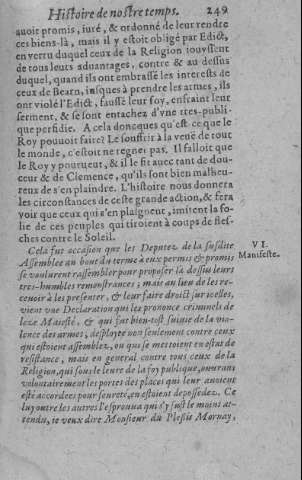 Histoire de nostre temps. 249
auoit promis, iuré, & ordonné de leur rendre
ces biens-là, mais il y estoit obligé par Edict,
en vertu duquel ceux de la Religion iouyssent
de tous leurs aduantages, contre & au dessus
duquel, quand ils ont embrassé les interests de
ceux de Bearn, iusques à prendre les armes, ils
ont violé l'Edict, faussé leur foy, enfraint leur
serment, & se sont entachez d'vne tres-publi-
que perfidie. A cela doncques qu'est-ce que le
Roy pouuoit faire? Le souffrir à la veuë de tout
le monde, c'estoit ne regner pas. Il falloit que
le Roy y pourueut, & il le fit auec tant de dou-
ceur & de Clemence, qu'ils sont bien malheu-
reux de s'en plaindre. L'histoire nous donnera
les circonstances de ceste grande action, & fera
voir que ceux qui s'en plaignent, imitent la fo-
lie de ces peuples qui tiroient à coups de fles-
ches contre le Soleil.
Cela fut occasion que les Deputez de la susdite
Assemblee au bout du terme à eux permis & promis
se voulurent rassembler pour proposer là dessus leurs
tres-humbles remonstrances; mais au lieu de les re-
ceuoir à les presenter, & leur faire droict sur icelles,
vient vne Declaration qui les prononce criminels de
leze Maiesté, & qui fut bien-tost suiuie de la vio-
lence des armes, desployee non seulement contre ceux
qui estoient assemblez, ou qui se mettoient en estat de
resistance, mais en general contre tous ceux de la
Religion, qui sous le leure de la foy publique, ouurans
volontairement les portes des places qui leur auoient
esté accordees pour seureté, en estoient depossedez. Ce
luy entre les autres l'esprouua qui s'y fust le moins at-
tendu, ie veux dire Monsieur du Plessis Mornay,
VI.
Manifeste.